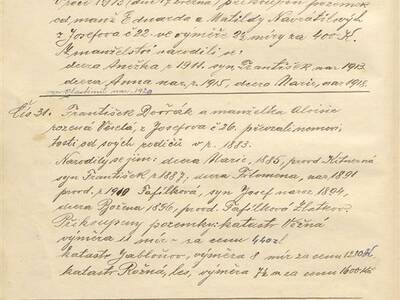 od manž. Eduarda a Matildy Navrátilových
z Josefova č 22 ve výměře 2½ míry za 400 K.
V manželství narodili se:
dcera Anežka, r 1911. syn František, nar 1913.
dcera Anna nar. r 1915, dcera Marie, nar 1918.
Vladimír nar. 1920
Čís 31. František Dvořák a manželka Aloisie
rozená Veselá, z Josefova č 26. převzali nemovi
tosti od svých rodičů v r. 1883.
Narodily se jim: dcera Marie, 1885, provd
syn František r 1887, dcera Filomena, nar 1891
provd. r 1910 Fafílková, syn Josef naroz. 1894,
dcera Božena 1896, provd. Fafílková
Přikoupeny pozemky: katastr
výměra 11 mír - za cenu 440 zl
katastr Jabloňov, výměra 8 mír za cenu
katastr Rožná, les, výměra 7½ m za cenu 1600 Kč